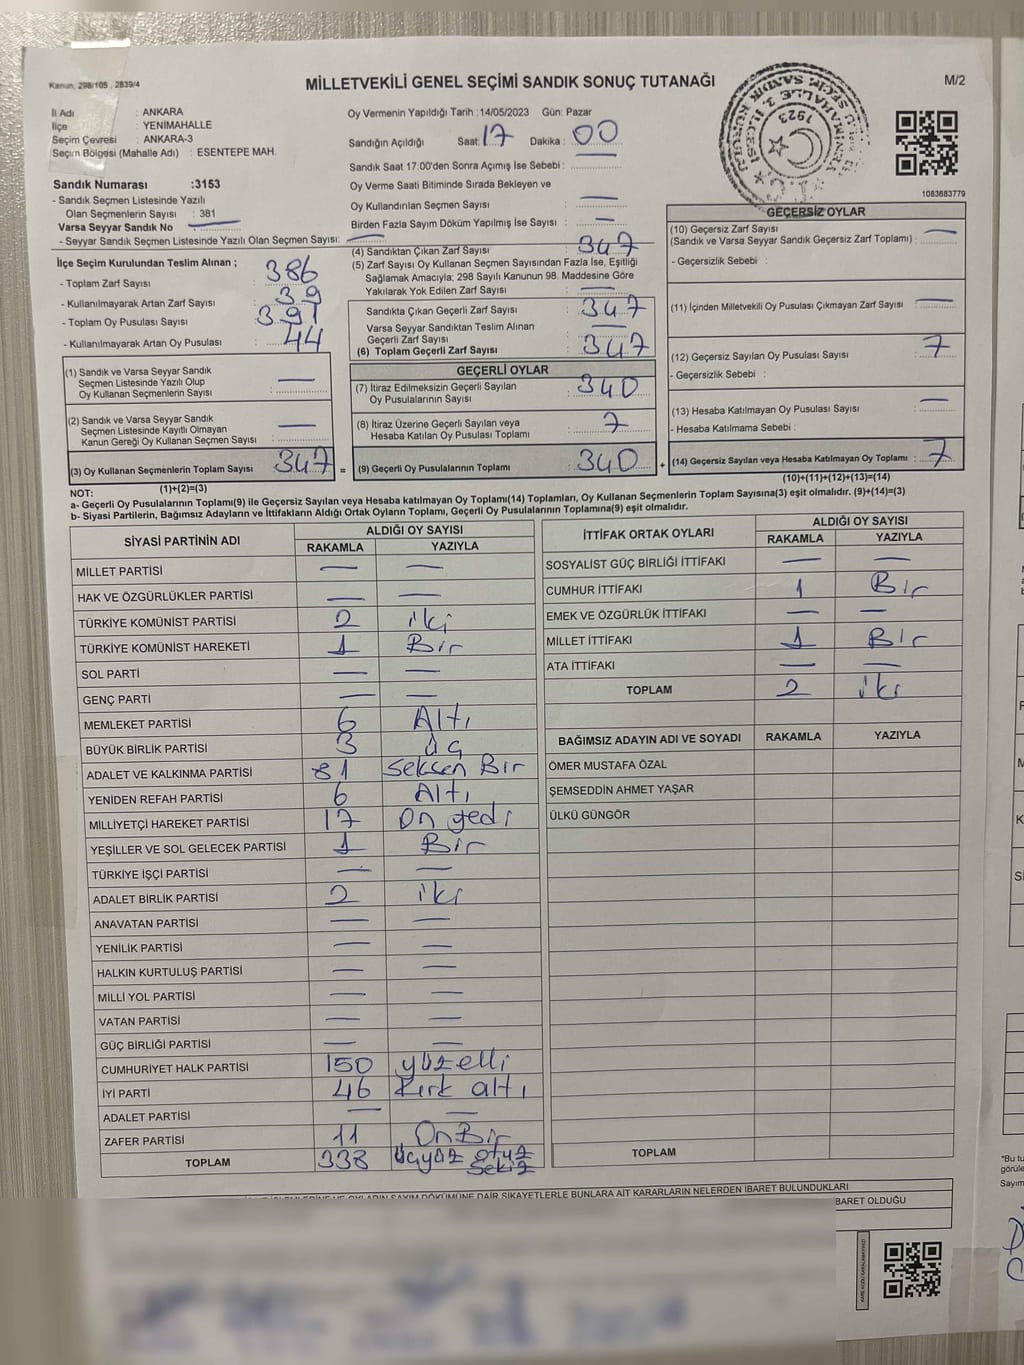 Kanun, 298/105 , 2839/4
MİLLETVEKİLİ GENEL SEÇİMİ SANDIK SONUÇ TUTANAĞI
M/2
İl Adı : ANKARA
İlçe : YENİMAHALLE
Seçim Çevresi : ANKARA-3
Seçim Bölgesi (Mahalle Adı) : ESENTEPE MAH.
Sandık Numarası :3153
- Sandık Seçmen Listesinde Yazılı
Olan Seçmenlerin Sayısı : 381
Varsa Seyyar Sandık No —
- Seyyar Sandık Seçmen Listesinde Yazılı Olan Seçmen Sayısı: —
İlçe Seçim Kurulundan Teslim Alınan ;
- Toplam Zarf Sayısı : 386
- Kullanılmayarak Artan Zarf Sayısı : 39
- Toplam Oy Pusulası Sayısı : 391
- Kullanılmayarak Artan Oy Pusulası : 44
(1) Sandık ve Varsa Seyyar Sandık
Seçmen Listesinde Yazılı Olup
Oy Kullanan Seçmenlerin Sayısı : —
(2) Sandık ve Varsa Seyyar Sandık
Seçmen Listesinde Kayıtlı Olmayan
Kanun Gereği Oy Kullanan Seçmen Sayısı : —
(3) Oy Kullanan Seçmenlerin Toplam Sayısı : 347
(1)+(2)=(3)
Oy Vermenin Yapıldığı Tarih :14/05/2023 Gün: Pazar
Sandığın Açıldığı Saat: 17 Dakika : 00
Sandık Saat 17:00'den Sonra Açımış İse Sebebi : —
Oy Verme Saati Bitiminde Sırada Bekleyen ve
Oy Kullandırılan Seçmen Sayısı : —
Birden Fazla Sayım Döküm Yapılmış İse Sayısı : —
(4) Sandıktan Çıkan Zarf Sayısı : 347
(5) Zarf Sayısı Oy Kullanan Seçmen Sayısından Fazla İse, Eşitliği
Sağlamak Amacıyla; 298 Sayılı Kanunun 98. Maddesine Göre
Yakılarak Yok Edilen Zarf Sayısı : —
Sandıkta Çıkan Geçerli Zarf Sayısı : 347
Varsa Seyyar Sandıktan Teslim Alınan
Geçerli Zarf Sayısı : —
(6) Toplam Geçerli Zarf Sayısı : 347
GEÇERLİ OYLAR
(7) İtiraz Edilmeksizin Geçerli Sayılan
Oy Pusulalarının Sayısı : 340
(8) İtiraz Üzerine Geçerli Sayılan veya
Hesaba Katılan Oy Pusulası Toplamı : 7
= (9) Geçerli Oy Pusulalarının Toplamı : 340 +
T.C.
1923
1083683779
GEÇERSİZ OYLAR
(10) Geçersiz Zarf Sayısı
(Sandık ve Varsa Seyyar Sandık Geçersiz Zarf Toplamı) : —
- Geçersizlik Sebebi :
(11) İçinden Milletvekili Oy Pusulası Çıkmayan Zarf Sayısı : —
(12) Geçersiz Sayılan Oy Pusulası Sayısı : 7
- Geçersizlik Sebebi :
(13) Hesaba Katılmayan Oy Pusulası Sayısı : —
- Hesaba Katılmama Sebebi :
(14) Geçersiz Sayılan veya Hesaba Katılmayan Oy Toplamı : 7
(10)+(11)+(12)+(13)=(14)
NOT:
a- Geçerli Oy Pusulalarının Toplamı(9) ile Geçersiz Sayılan veya Hesaba katılmayan Oy Toplamı(14) Toplamları, Oy Kullanan Seçmenlerin Toplam Sayısına(3) eşit olmalıdır. (9)+(14)=(3)
b- Siyasi Partilerin, Bağımsız Adayların ve İttifakların Aldığı Ortak Oyların Toplamı, Geçerli Oy Pusulalarının Toplamına(9) eşit olmalıdır.
SİYASİ PARTİNİN ADI ALDIĞI OY SAYISI
RAKAMLA YAZIYLA
MİLLET PARTİSİ — —
HAK VE ÖZGÜRLÜKLER PARTİSİ — —
TÜRKİYE KOMÜNİST PARTİSİ 2 iki
TÜRKİYE KOMÜNİST HAREKETİ 1 Bir
SOL PARTİ — —
GENÇ PARTİ — —
MEMLEKET PARTİSİ 6 Altı
BÜYÜK BİRLİK PARTİSİ 3 üç
ADALET VE KALKINMA PARTİSİ 81 Seksen Bir
YENİDEN REFAH PARTİSİ 6 Altı
MİLLİYETÇİ HAREKET PARTİSİ 17 On yedi
YEŞİLLER VE SOL GELECEK PARTİSİ 1 Bir
TÜRKİYE İŞÇİ PARTİSİ — —
ADALET BİRLİK PARTİSİ 2 iki
ANAVATAN PARTİSİ — —
YENİLİK PARTİSİ — —
HALKIN KURTULUŞ PARTİSİ — —
MİLLİ YOL PARTİSİ — —
VATAN PARTİSİ — —
GÜÇ BİRLİĞİ PARTİSİ — —
CUMHURİYET HALK PARTİSİ 150 yüzelli
İYİ PARTİ 46 Kırk altı
ADALET PARTİSİ — —
ZAFER PARTİSİ 11 OnBir
TOPLAM 338 üçyüz otuz sekiz
İTTİFAK ORTAK OYLARI ALDIĞI OY SAYISI
RAKAMLA YAZIYLA
SOSYALİST GÜÇ BİRLİĞİ İTTİFAKI — —
CUMHUR İTTİFAKI 1 Bir
EMEK VE ÖZGÜRLÜK İTTİFAKI — —
MİLLET İTTİFAKI 1 Bir
ATA İTTİFAKI — —
TOPLAM 2 iki
BAĞIMSIZ ADAYIN ADI VE SOYADI RAKAMLA YAZIYLA
ÖMER MUSTAFA ÖZAL
ŞEMSEDDİN AHMET YAŞAR
ÜLKÜ GÜNGÖR
TOPLAM
OYLARIN SAYIM DÖKÜMÜNE DAİR ŞİKAYETLERLE BUNLARA AİT KARARLARIN NELERDEN İBARET BULUNDUKLARI
BARET OLDUĞU
"Bu tu
görüle
Sayım